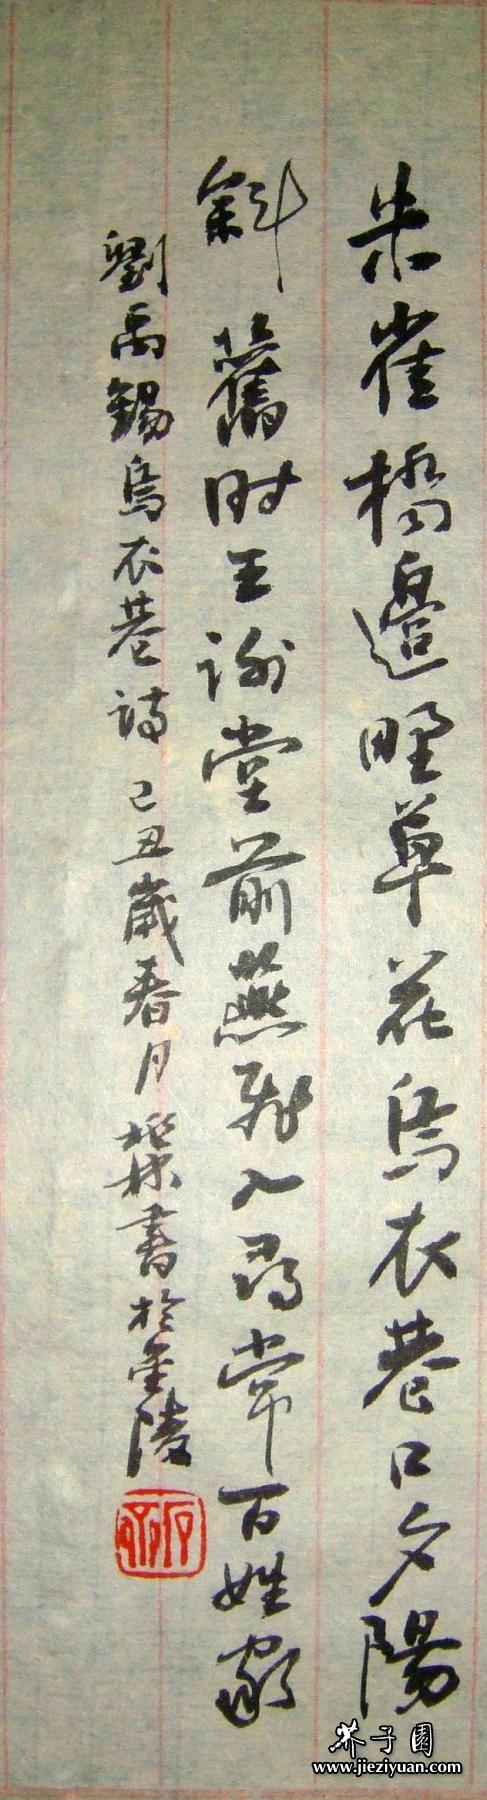 朱雀橋邉野草花烏衣巷口夕陽
斜舊时王谢堂前燕飛入尋常百姓家
劉禹錫烏衣巷詩己丑歲春月書於金陵
芥子園
www.jieziyuan.com